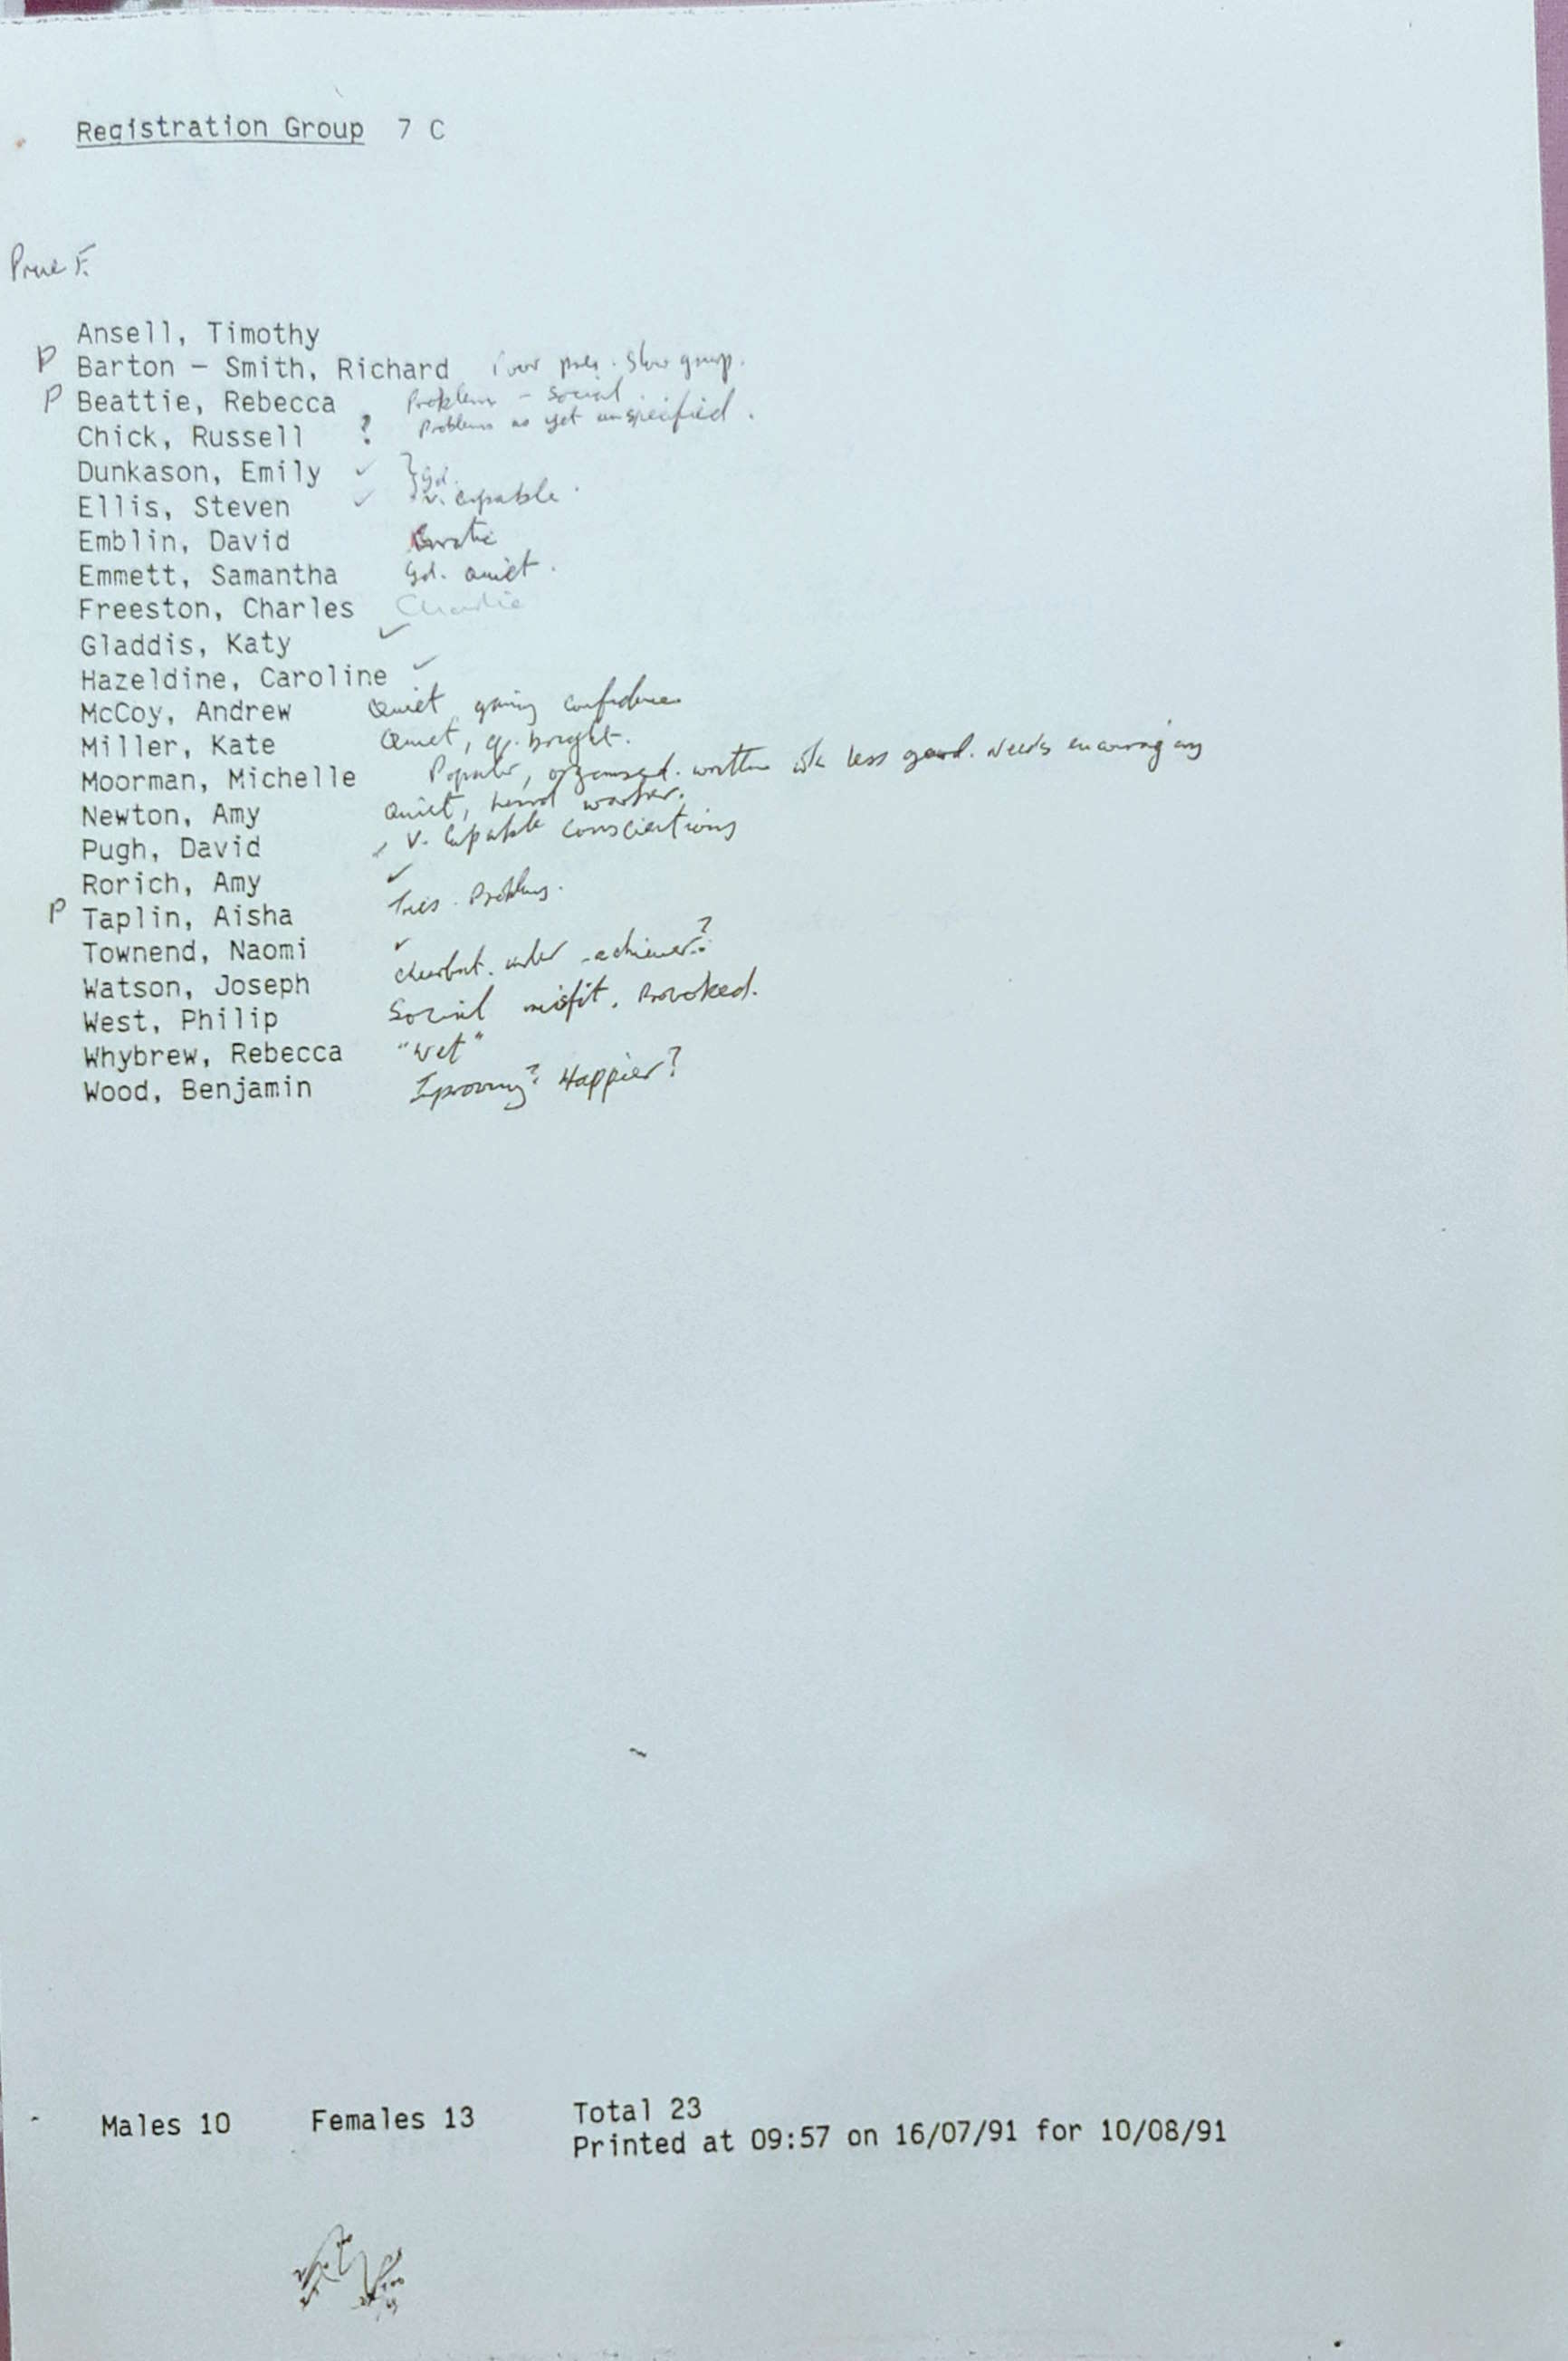 Registration Group 7 C
Prue F.
Ansell, Timothy
P Barton - Smith, Richard slow group.
P Beattie, Rebecca Problem - Social
Chick, Russell ? Problems as yet unspecified.
Dunkason, Emily ✓ } Gd.
Ellis, Steven ✓ v. capable.
Emblin, David Erratic
Emmett, Samantha Gd. Quiet.
Freeston, Charles Charlie
Gladdis, Katy ✓
Hazeldine, Caroline ✓
McCoy, Andrew Quiet gaining confidence
Miller, Kate Quiet, bright.
Moorman, Michelle Popular, organised. written wk less good. Needs encouraging
Newton, Amy Quiet, hard worker.
Pugh, David V. Capable conscientious
Rorich, Amy ✓
P Taplin, Aisha Tries. Problems.
Townend, Naomi ✓
Watson, Joseph under-achiever?
West, Philip Social misfit. Provoked.
Whybrew, Rebecca "Wet"
Wood, Benjamin Improving? Happier?
Males 10 Females 13 Total 23
Printed at 09:57 on 16/07/91 for 10/08/91